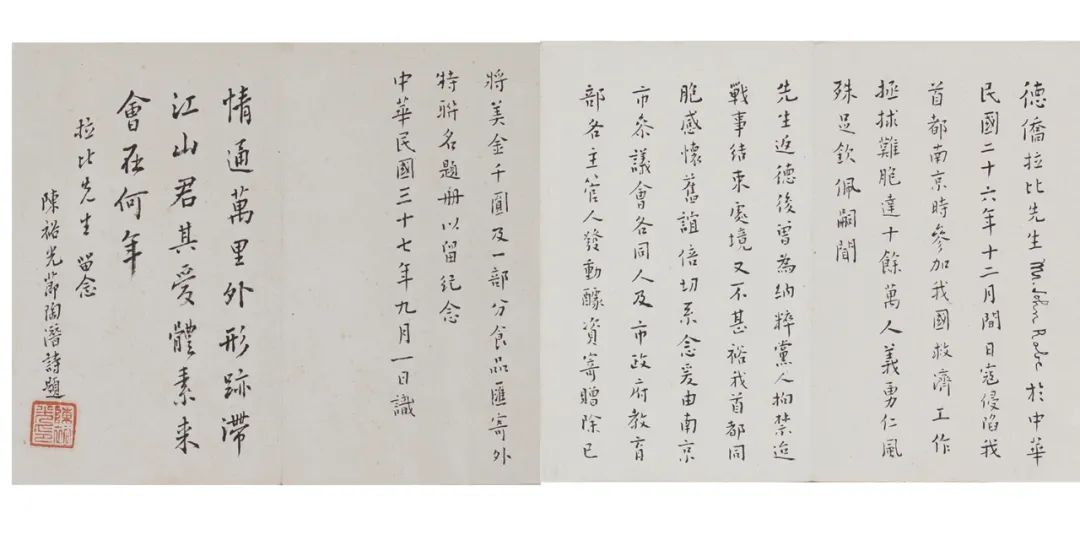 德僑拉比先生 Mr. John Rabe 於中華
民國二十六年十二月間日寇侵陷我
首都南京時參加我國救濟工作
拯捄難胞達十餘萬人義勇仁風
殊足欽佩嗣聞
先生返德後曾為納粹黨人拘禁迨
戰事結束處境又不甚裕我首都同
胞感懷舊誼倍切系念爰由南京
市參議會各同人及市政府教育
部各主管人發動醵資寄贈除已
將美金千圓及一部分食品匯寄外
特聯名題册以留紀念
中華民國三十七年九月一日識
情通萬里外形跡滯
江山君其愛體素来
會在何年
拉比先生 留念
陳裕光節陶潛詩題
陳裕光印